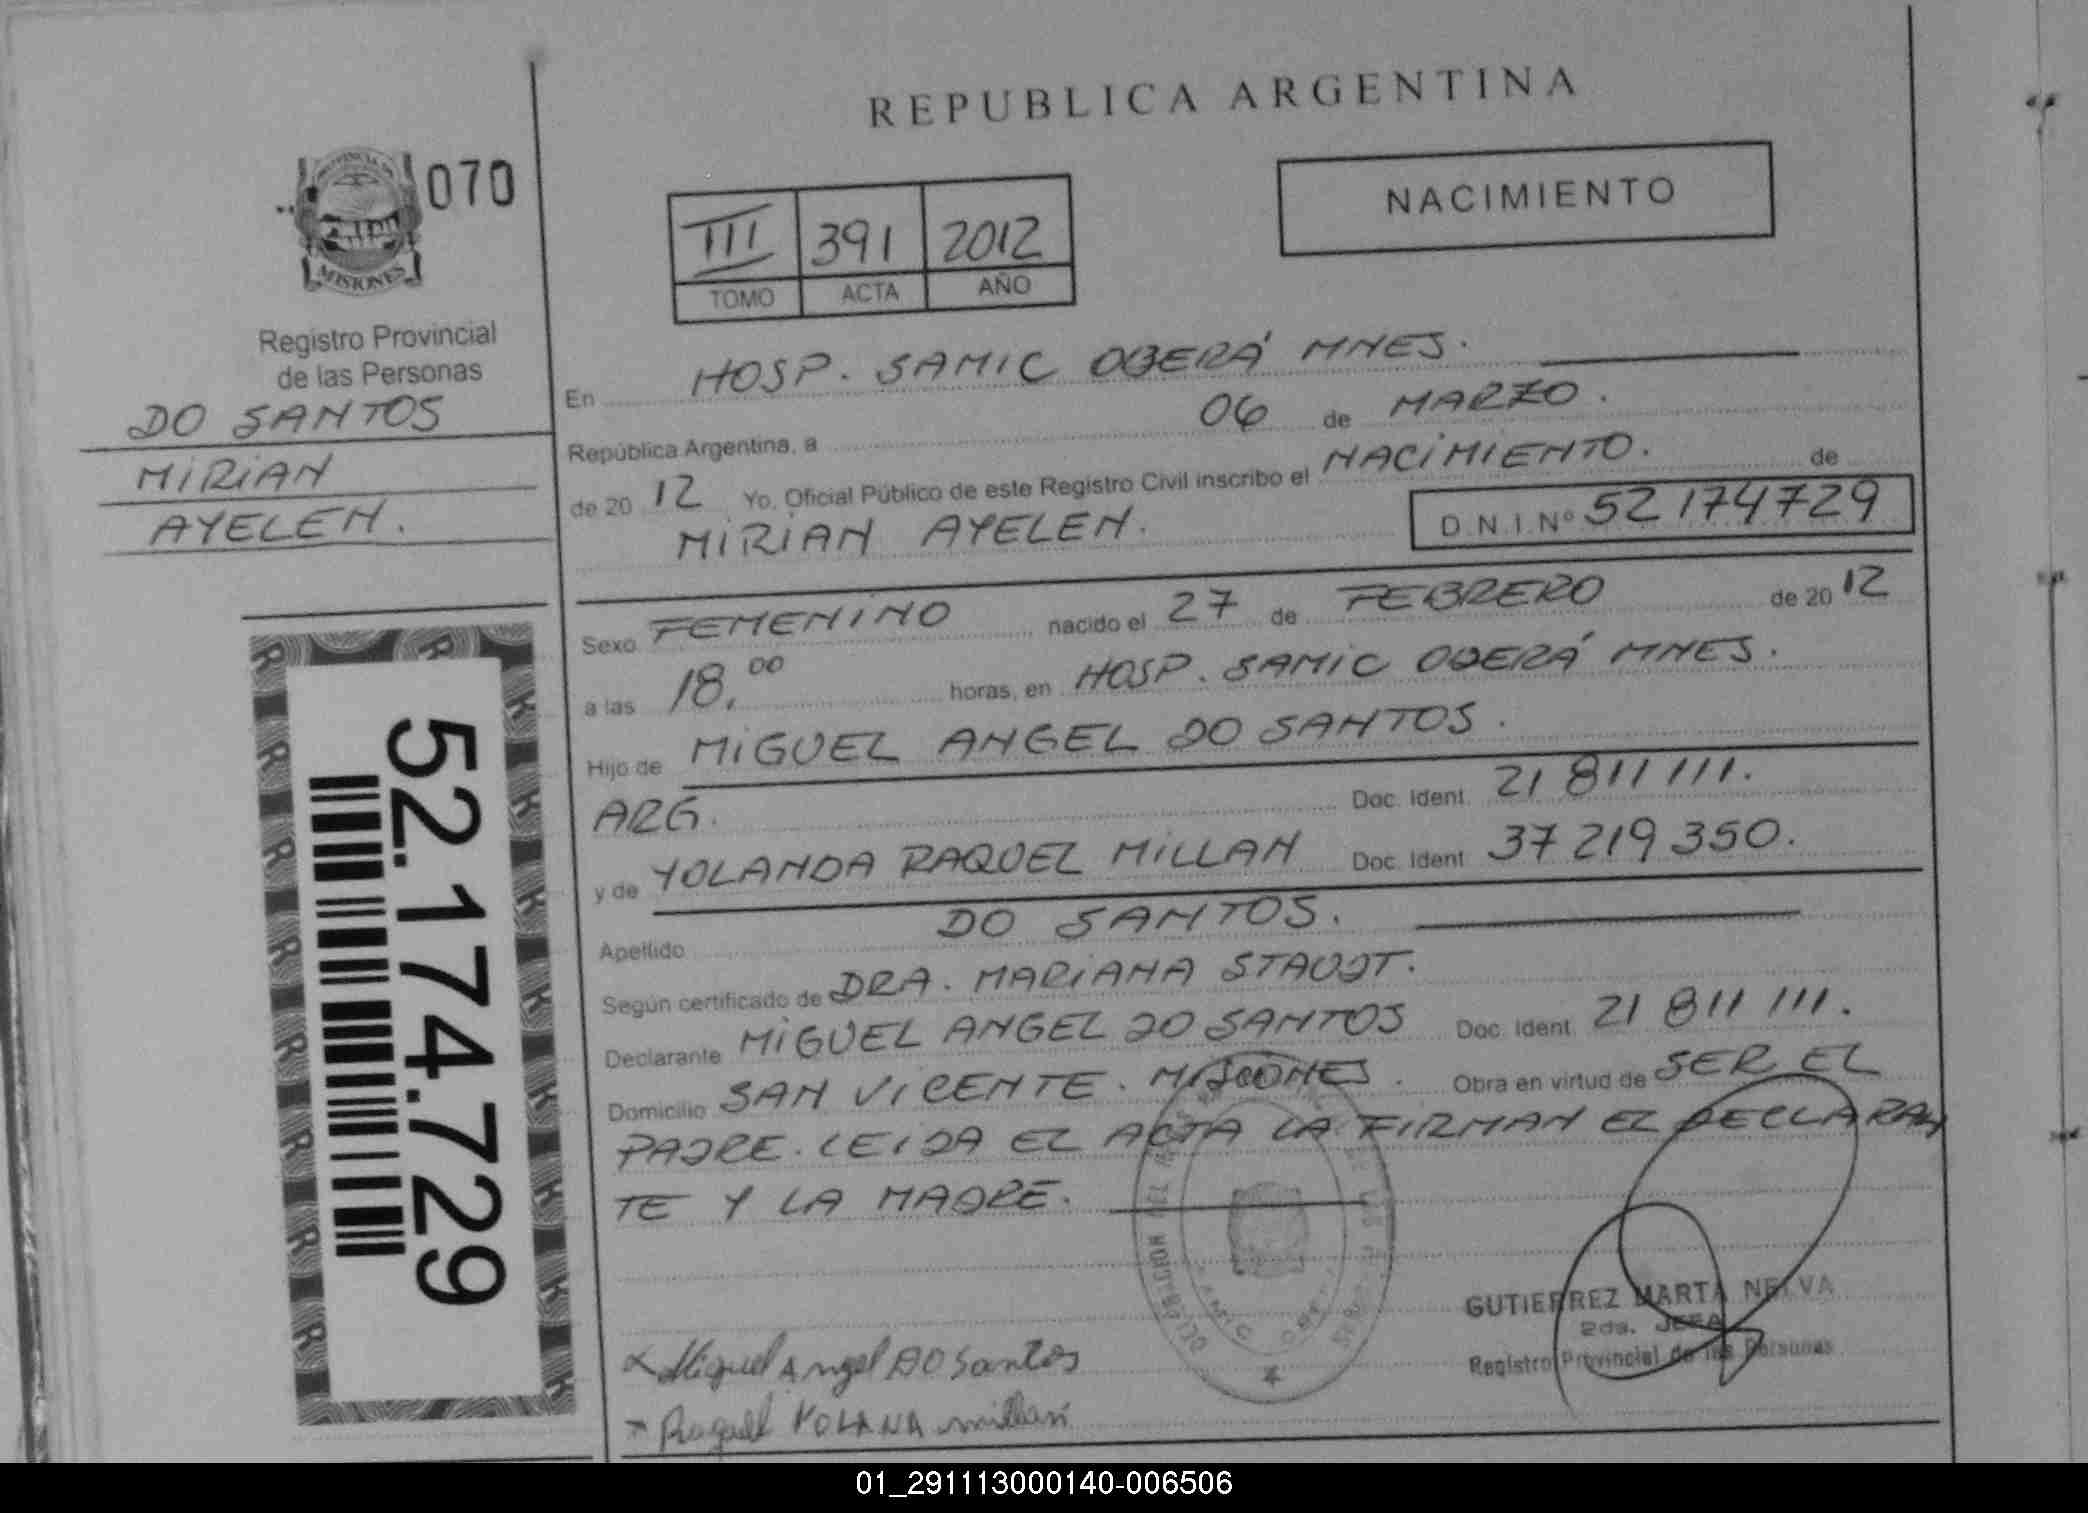 REPUBLICA ARGENTINA
PROVINCIA DE
MISIONES
070
NACIMIENTO
III 391 2012
TOMO ACTA AÑO
Registro Provincial
de las Personas
DO SANTOS
MIRIAN
AYELEN.
En HOSP. SAMIC OBERÁ MNES.
República Argentina, a 06 de MARZO.
de 20 12 Yo, Oficial Público de este Registro Civil inscribo el NACIMIENTO. de
MIRIAN AYELEN. D.N.I.Nº 52 174729
Sexo FEMENINO nacido el 27 de FEBRERO de 20 12
a las 18.00 horas, en HOSP. SAMIC OBERÁ MNES.
Hijo de MIGUEL ANGEL DO SANTOS.
ARG. Doc. Ident. 21 811 111.
y de YOLANDA RAQUEL MILLAN Doc. Ident 37 219 350.
Apellido DO SANTOS.
Según certificado de DRA. MARIANA STAUDT.
Declarante MIGUEL ANGEL DO SANTOS Doc. Ident. 21 811 111.
Domicilio SAN VICENTE. MISIONES. Obra en virtud de SER EL
PADRE. LEIDA EL ACTA LA FIRMAN EL DECLARAN
TE Y LA MADRE.
52.174.729
GUTIERREZ MARTA NELVA
2da. JEFA
Registro Provincial de las Personas
Miguel Angel DO Santos
Raquel YOLANA millan
01_291113000140-006506